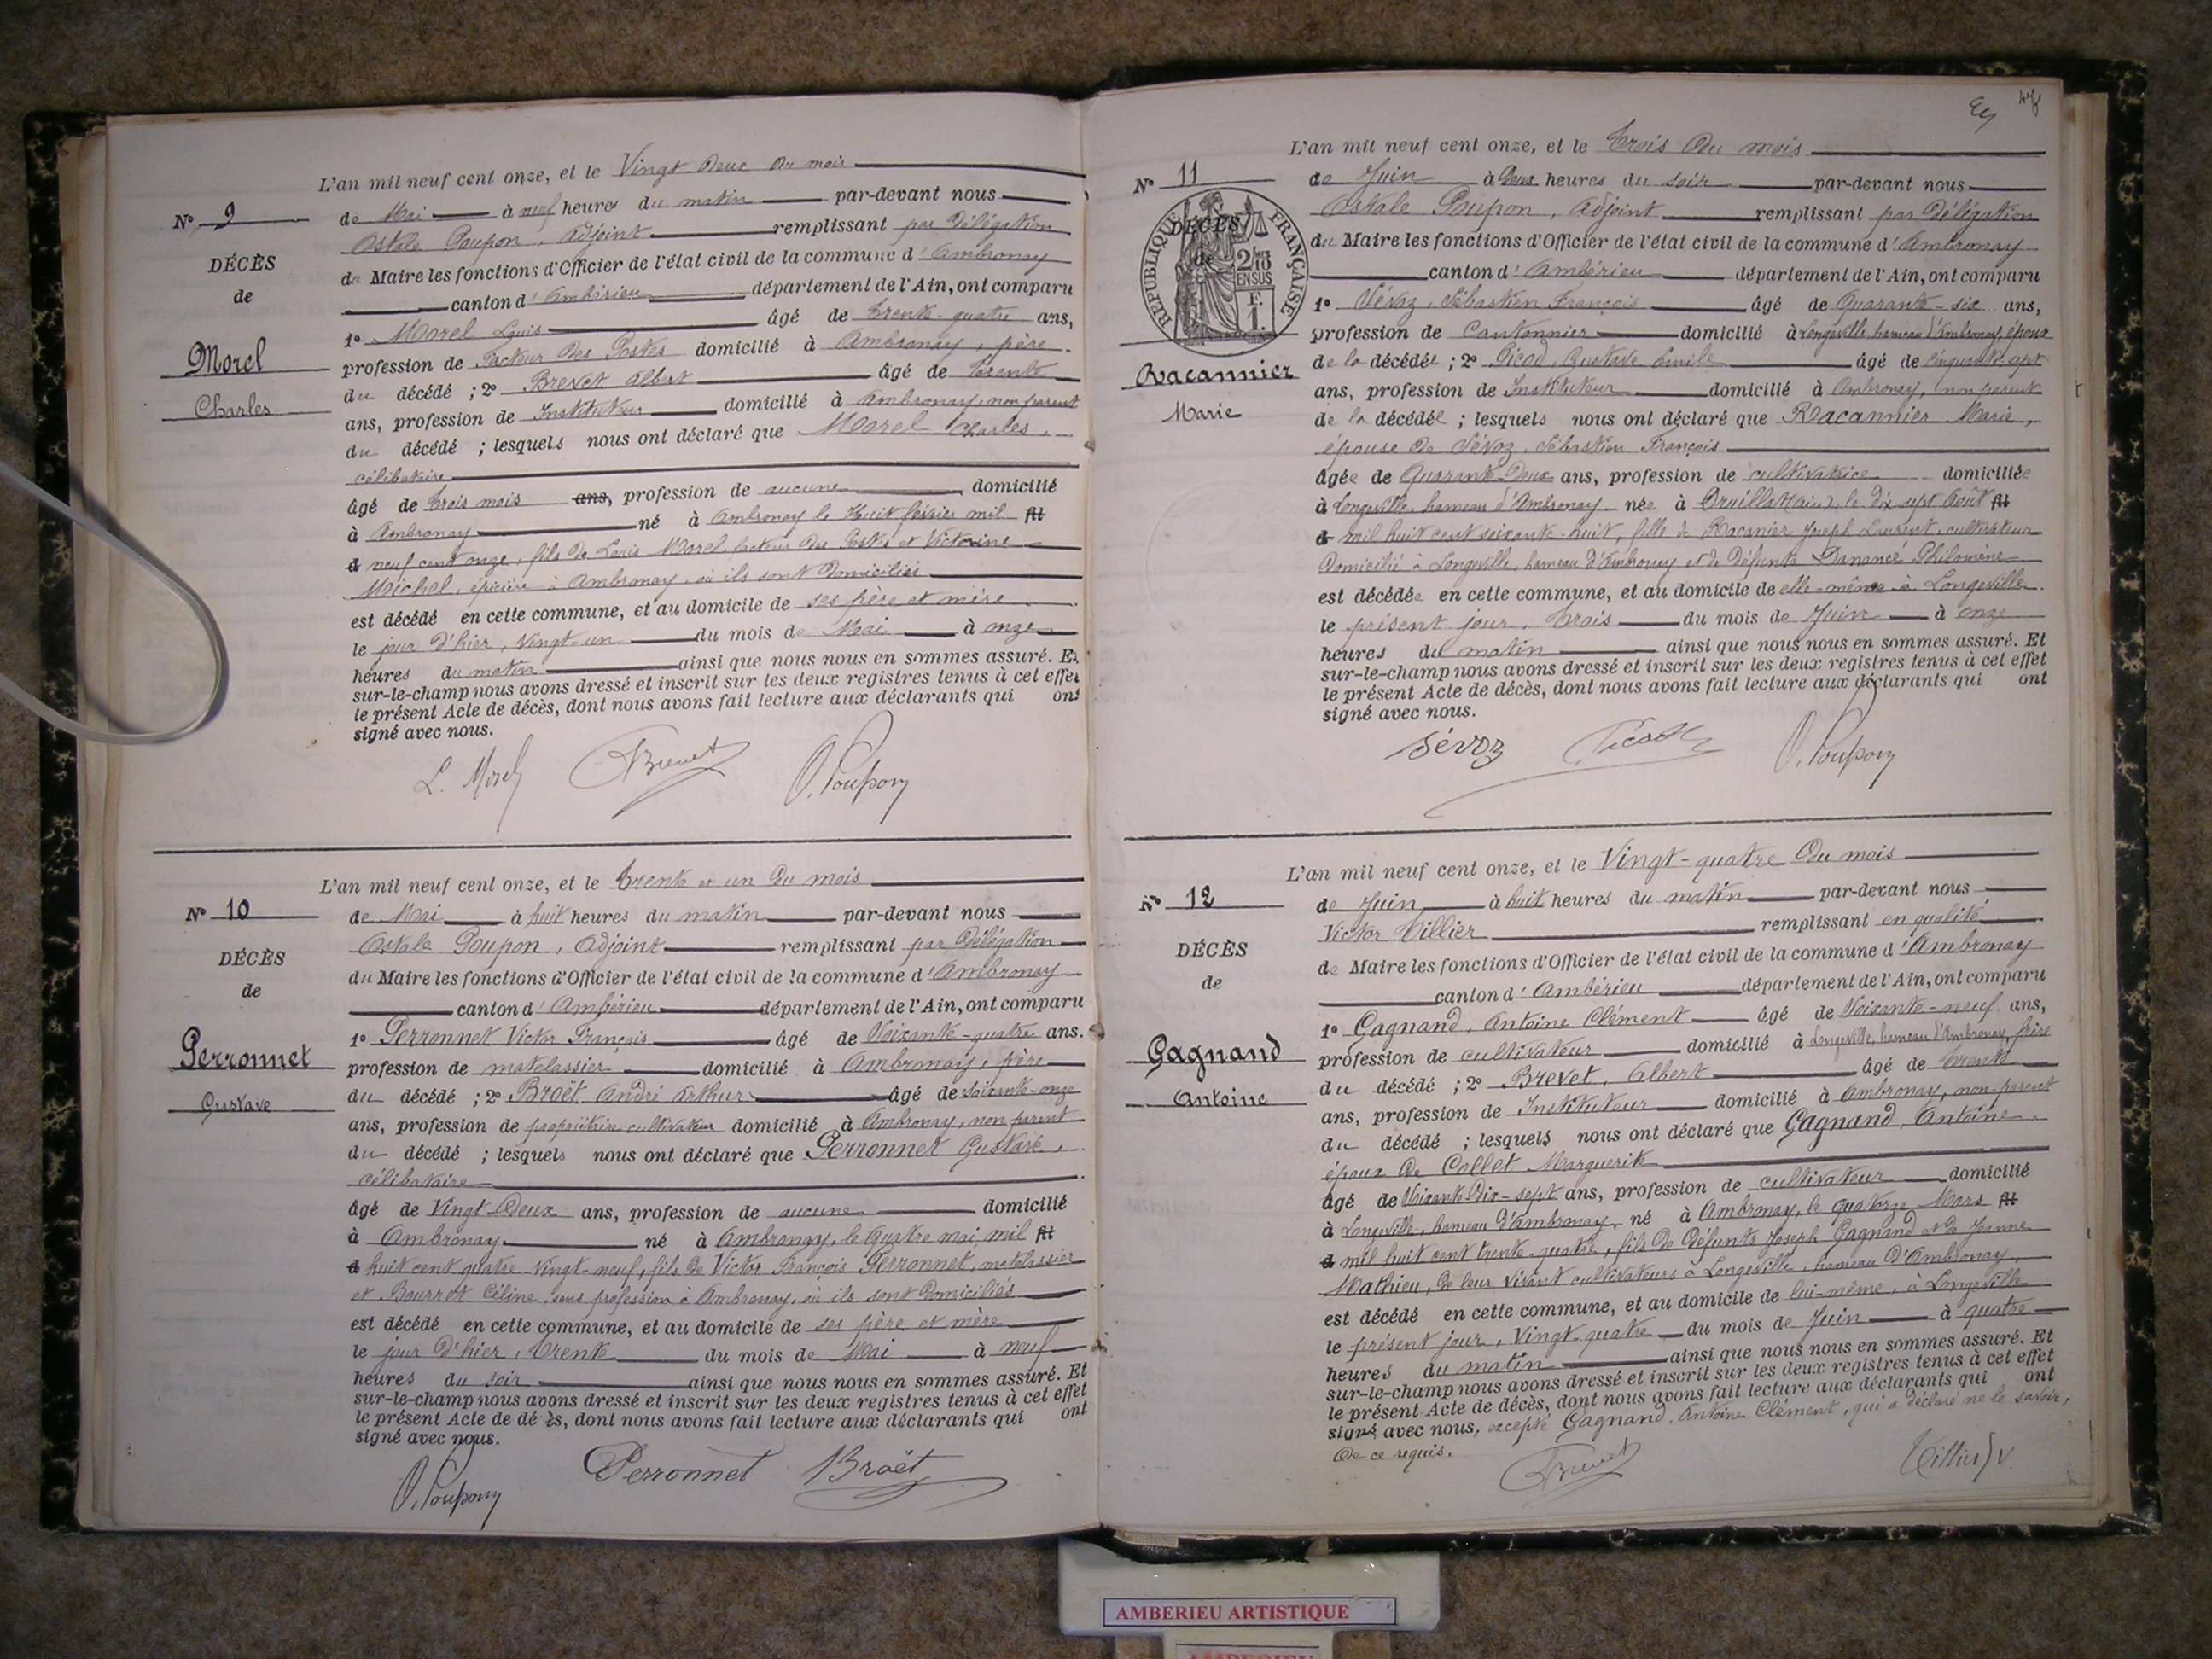 L'an mil neuf cent onze, et le Vingt Deux du mois
N° 9
de Mai à neuf heures du matin par-devant nous
Ostale Poupon, adjoint remplissant par Délégation
DÉCÈS
du Maire les fonctions d'Officier de l'état civil de la commune d'Ambronay
de
canton d'Ambérieu département de l'Ain, ont comparu
1° Morel Louis âgé de Trente-quatre ans,
Morel
profession de Facteur des Postes domicilié à Ambronay, père
du décédé ; 2° Brevet Albert âgé de Trente
Charles
ans, profession de Instituteur domicilié à Ambronay, non parent
du décédé ; lesquels nous ont déclaré que Morel Charles,
célibataire
âgé de trois mois ans, profession de aucune domicilié
à Ambronay né à Ambronay le Huit février mil fil
d neuf cent onze, fils de Louis Morel, facteur des Postes et Victorine
Michel, épicière à Ambronay, où ils sont Domiciliés
est décédé en cette commune, et au domicile de ses père et mère
le jour d'hier, vingt-un du mois de Mai à onze
heures du matin ainsi que nous nous en sommes assuré. Et
sur-le-champ nous avons dressé et inscrit sur les deux registres tenus à cet effet
le présent Acte de décès, dont nous avons fait lecture aux déclarants qui ont
signé avec nous.
L. Morel Brevet O. Poupon
L'an mil neuf cent onze, et le trente et un du mois
N° 10
de Mai à huit heures du matin par-devant nous
Ostale Poupon, adjoint remplissant par Délégation
DÉCÈS
du Maire les fonctions d'Officier de l'état civil de la commune d'Ambronay
de
canton d'Ambérieu département de l'Ain, ont comparu
1° Perronnet Victor François âgé de Soixante-quatre ans.
Perronnet
profession de matelassier domicilié à Ambronay, père
du décédé ; 2° Broët André Arthur âgé de soixante-onze
Gustave
ans, profession de propriétaire cultivateur domicilié à Ambronay, non parent
du décédé ; lesquels nous ont déclaré que Perronnet Gustave,
célibataire
âgé de Vingt-Deux ans, profession de aucune domicilié
à Ambronay né à Ambronay, le quatre mai mil fil
d huit cent quatre-vingt-neuf, fils de Victor François Perronnet, matelassier
et Bourret Céline, sans profession à Ambronay, où ils sont Domiciliés
est décédé en cette commune, et au domicile de ses père et mère
le jour d'hier, trente du mois de Mai à neuf
heures du soir ainsi que nous nous en sommes assuré. Et
sur-le-champ nous avons dressé et inscrit sur les deux registres tenus à cet effet
le présent Acte de dé ès, dont nous avons fait lecture aux déclarants qui ont
signé avec nous.
O. Poupon Perronnet Broët
L'an mil neuf cent onze, et le trois du mois
N° 11
de Juin à Deux heures du soir par-devant nous
Ostale Poupon, adjoint remplissant par Délégation
RÉPUBLIQUE FRANÇAISE
DÉCÈS
de
du Maire les fonctions d'Officier de l'état civil de la commune d'Ambronay
canton d'Ambérieu département de l'Ain, ont comparu
1° Sévoz, Sébastien François âgé de Quarante-six ans,
profession de Cantonnier domicilié à Longeville, hameau d'Ambronay, époux
Racannier
de la décédée ; 2° Picod, Gustave Emile âgé de cinquante sept
Marie
ans, profession de Instituteur domicilié à Ambronay, non parent
de la décédée ; lesquels nous ont déclaré que Racannier Marie,
épouse de Sévoz, Sébastien François
âgée de Quarante Deux ans, profession de cultivatrice domiciliée
à Longeville, hameau d'Ambronay née à Druillat (Ain), le dix sept Août fil
d mil huit cent soixante-huit, fille de Racanier Joseph Laurent, cultivateur
Domicilié à Longeville, hameau d'Ambronay et de Défunte Danancé Philomène
est décédée en cette commune, et au domicile de elle-même à Longeville
le présent jour, trois du mois de Juin à onze
heures du matin ainsi que nous nous en sommes assuré. Et
sur-le-champ nous avons dressé et inscrit sur les deux registres tenus à cet effet
le présent Acte de décès, dont nous avons fait lecture aux déclarants qui ont
signé avec nous.
Sévoz Picod O. Poupon
L'an mil neuf cent onze, et le Vingt-quatre du mois
N° 12
de Juin à huit heures du matin par-devant nous
Victor Tillier remplissant en qualité
DÉCÈS
de Maire les fonctions d'Officier de l'état civil de la commune d'Ambronay
de
canton d'Ambérieu département de l'Ain, ont comparu
1° Gagnand, Antoine Clément âgé de Soixante-neuf ans,
Gagnand
profession de cultivateur domicilié à Longeville, hameau d'Ambronay, frère
du décédé ; 2° Brevet, Albert âgé de trente
Antoine
ans, profession de Instituteur domicilié à Ambronay, non-parent
du décédé ; lesquels nous ont déclaré que Gagnand, Antoine
époux de Collet Marguerite
âgé de Soixante Dix-sept ans, profession de cultivateur domicilié
à Longeville, hameau d'Ambronay, né à Ambronay, le quatorze Mars fil
d mil huit cent trente-quatre, fils de Défunts Joseph Gagnand et de Jeanne
Mathieu, de leur vivant cultivateurs à Longeville, hameau d'Ambronay
est décédé en cette commune, et au domicile de lui-même, à Longeville
le présent jour, Vingt-quatre du mois de Juin à quatre
heures du matin ainsi que nous nous en sommes assuré. Et
sur-le-champ nous avons dressé et inscrit sur les deux registres tenus à cet effet
le présent Acte de décès, dont nous avons fait lecture aux déclarants qui ont
signé avec nous, excepté Gagnand, Antoine Clément, qui a déclaré ne le savoir,
De ce requis.
Brevet Tillier V
AMBERIEU ARTISTIQUE